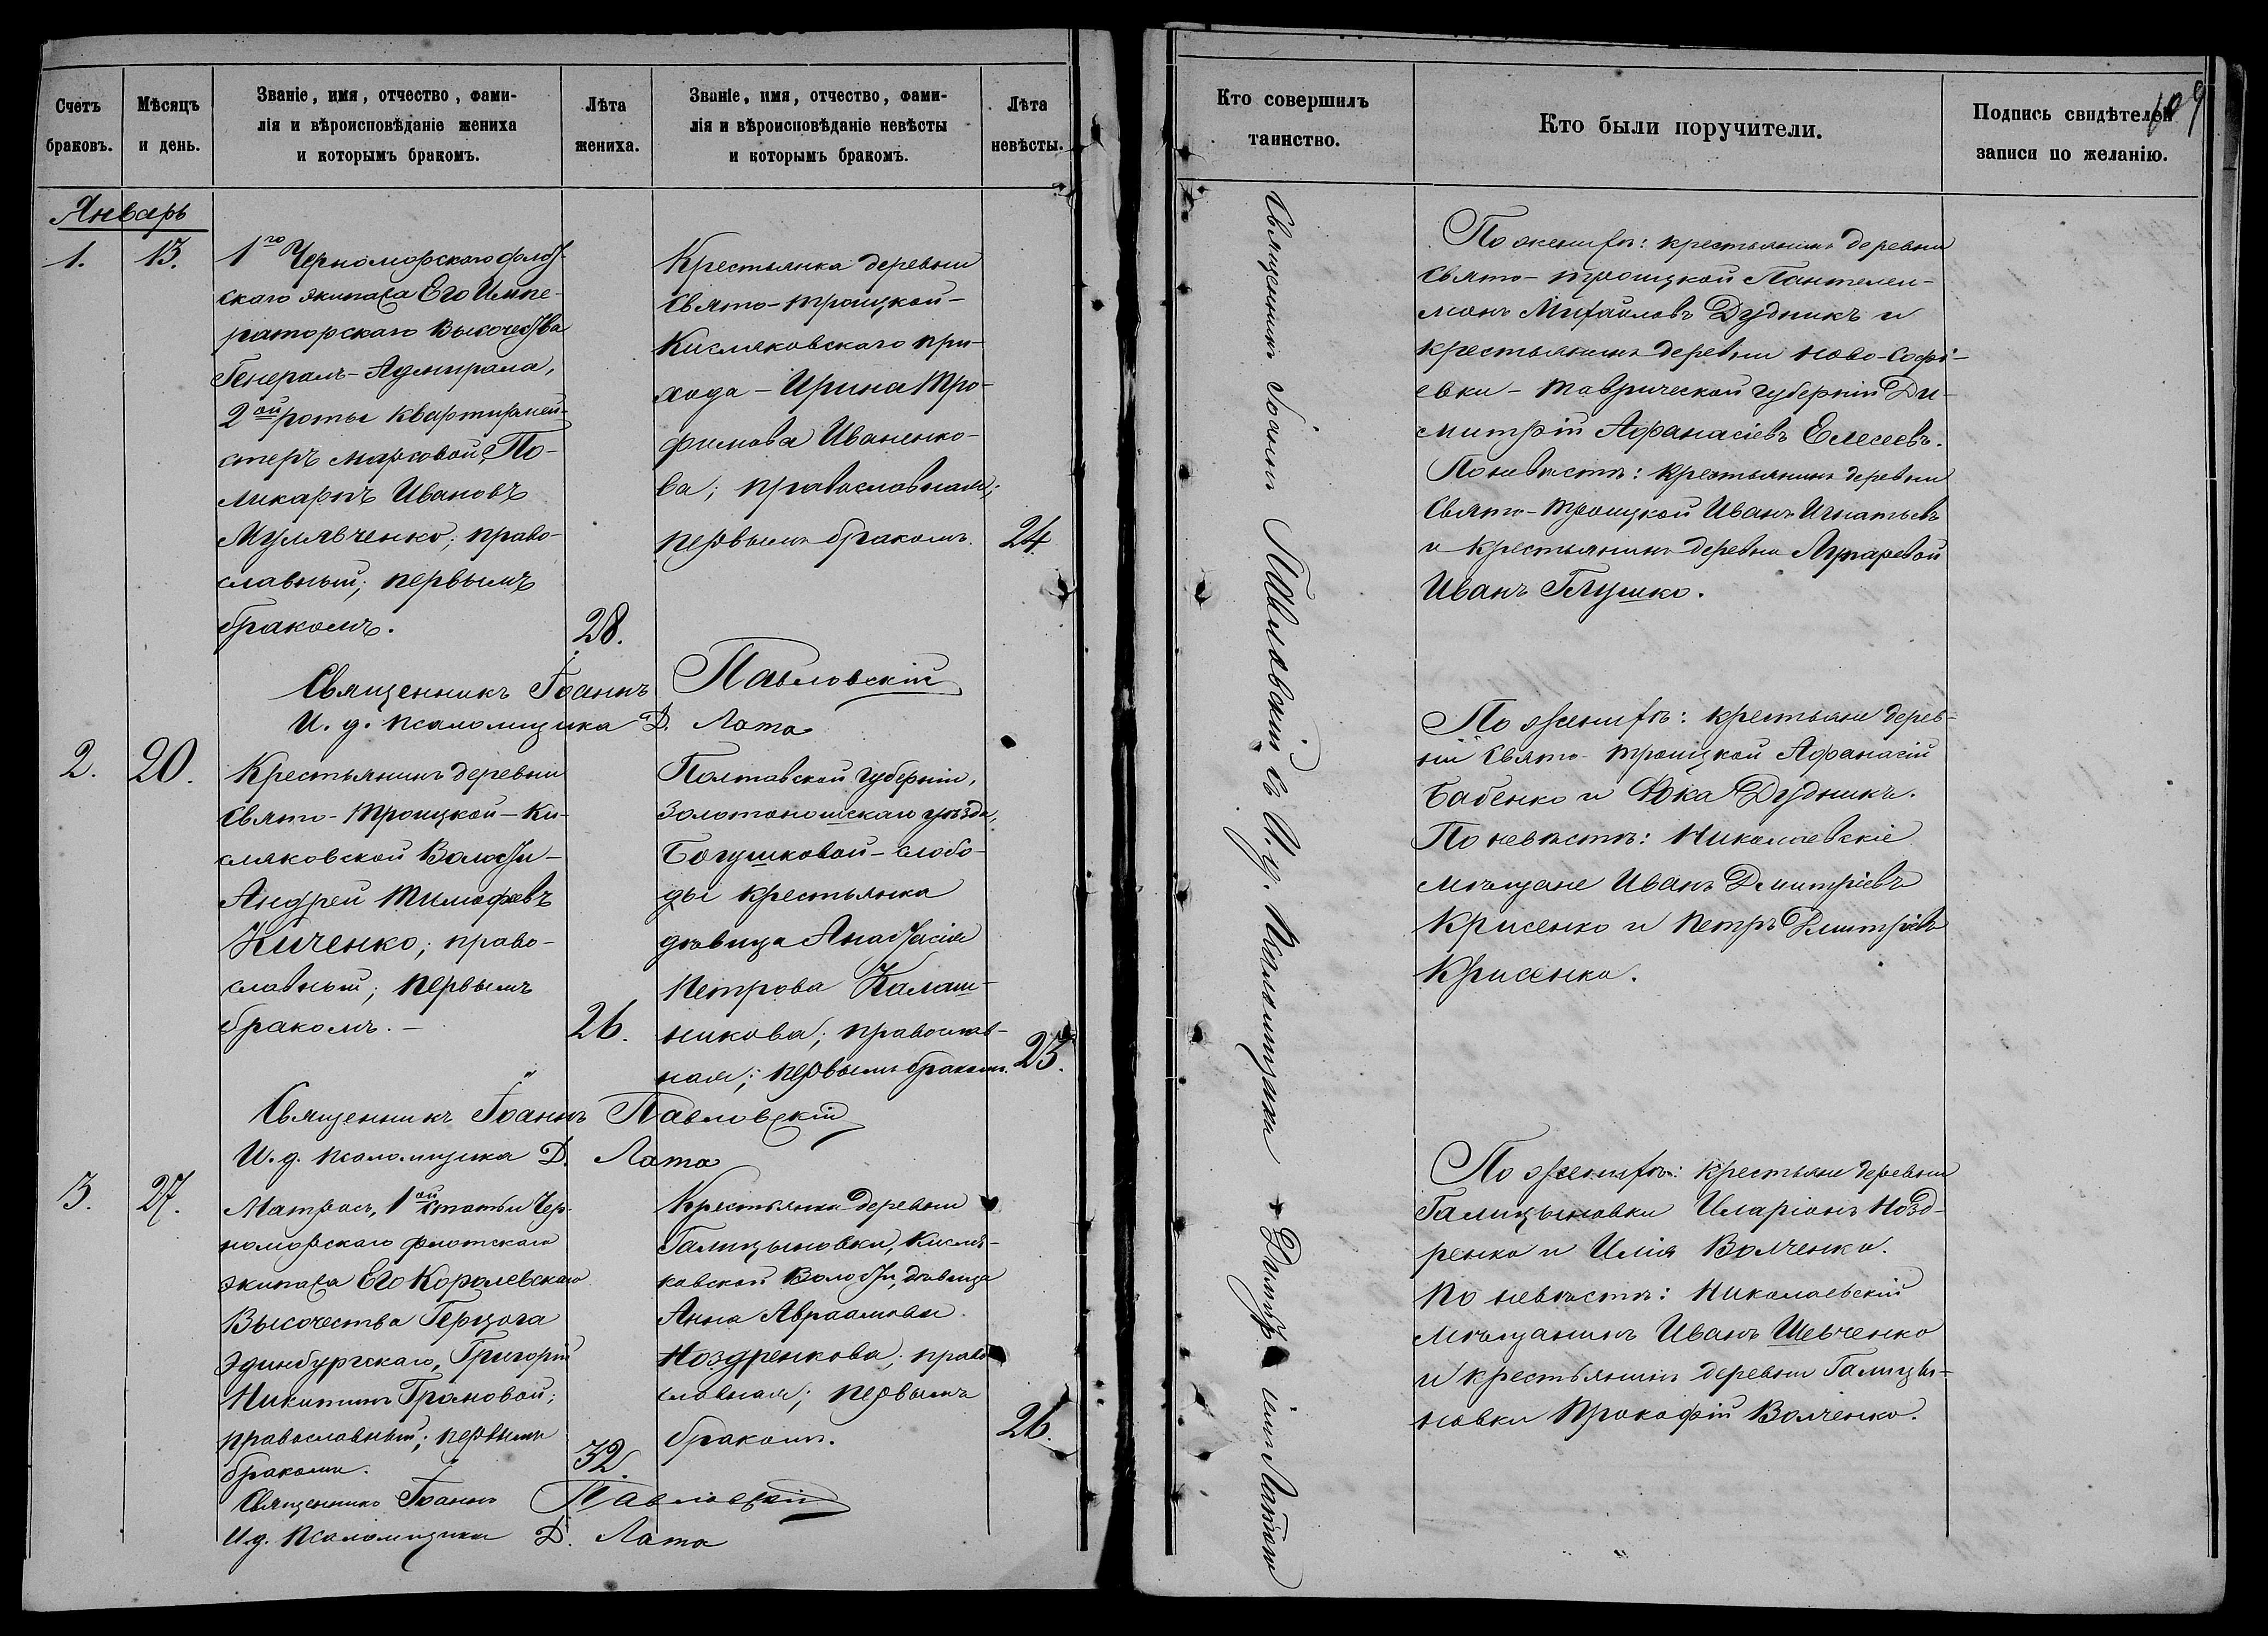 Счетъ
браковъ.
Мѣсяцъ
и день.
Званіе, имя, отчество, фами-
лія и вѣроисповѣданіе жениха
и которымъ бракомъ.
Лѣта
жениха.
Званіе, имя, отчество, фами-
лія и вѣроисповѣданіе невѣсты
и которымъ бракомъ.
Лѣта
невѣсты.
Январь
1.
13.
1го Черноморскаго флот-
скаго экипажа Его Импе-
раторскаго Высочества
Генералъ-Адмирала,
2ой роты квартирмей-
стеръ марсовой, По-
ликарпъ Ивановъ
Мулявченко; право-
славный; первымъ
бракомъ.
28.
Крестьянка деревни
Свято-Троицкой-
Кисляковскаго при-
хода - Ирина Тро-
фимова Иваненко-
ва; православная;
первымъ бракомъ.
24
Священникъ Іоаннъ Павловскій
И. д. псаломщика Д. Лата
2.
20.
Крестьянинъ деревни
Свято-Троицкой-Ки-
сляковской Волости-
Андрей Тимофеевъ
Киченко; право-
славный; первымъ
бракомъ. -
26.
Полтавской губерніи,
Золотоношскаго уѣзда,
Богушковой-слобо-
ды крестьянка
дѣвица Анастасія
Петрова Калаш-
никова; православ-
ная; первымъ бракомъ.
23.
Священникъ Іоаннъ Павловскій
И. д. псаломщика Д. Лата
3.
27.
Матросъ, 1ой статьи Чер-
номорскаго флотскаго
экипажа Его Королевскаго
Высочества Герцога
Эдинбургскаго, Григорій
Никитинъ Громовой;
православный; первымъ
бракомъ.
32.
Крестьянка деревни
Галицыновки, Кисля-
ковской Волости, дѣвица
Анна Авраамова
Ноздренкова; право
славная; первымъ
бракомъ.
26.
Священникъ Іоаннъ Павловскій
И. д. Псаломщика Д. Лата
109
Кто совершилъ
таинство.
Кто были поручители.
Подпись свидѣтелей
записи по желанію.
Священникъ Іоаннъ Павловскій съ И. д. Псаломщика Латою
По женихѣ: крестьянинъ деревни
Свято-Троицкой Пантелеи-
монъ Михайловъ Дудникъ и
крестьянинъ деревни Ново-Софі-
евки - Таврической губерніи Ди-
митрій Афанасіевъ Елесеевъ.
По невѣстѣ: крестьянинъ деревни
Свято-Троицкой Иванъ Игнатьевъ
и крестьянинъ деревни Лупаревой
Иванъ Глушко.
По женихѣ: крестьяне дерев-
ни Свято-Троицкой Афанасій
Бабенко и Фока Дудникъ.
По невѣстѣ: Николаевскіе
мѣщане Иванъ Дмитріевъ
Крисенко и Петръ Дмитріевъ
Крисенко.
По женихѣ: крестьяне деревни
Галицыновки Иларіонъ Нозд-
ренко и Илія Волченко.
По невѣстѣ: Николаевскій
мѣщанинъ Иванъ Шевченко
и крестьянинъ деревни Галицы-
новки Прокофій Волченко.